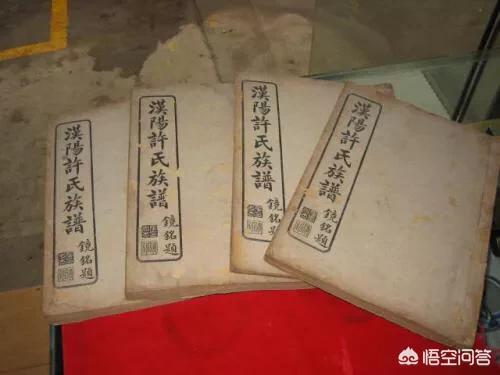 漢陽許氏族譜
鏡銘題
漢陽許氏族譜
鏡銘題
漢陽許氏族譜
鏡銘題
漢陽許氏族譜
鏡銘題
悟空问答